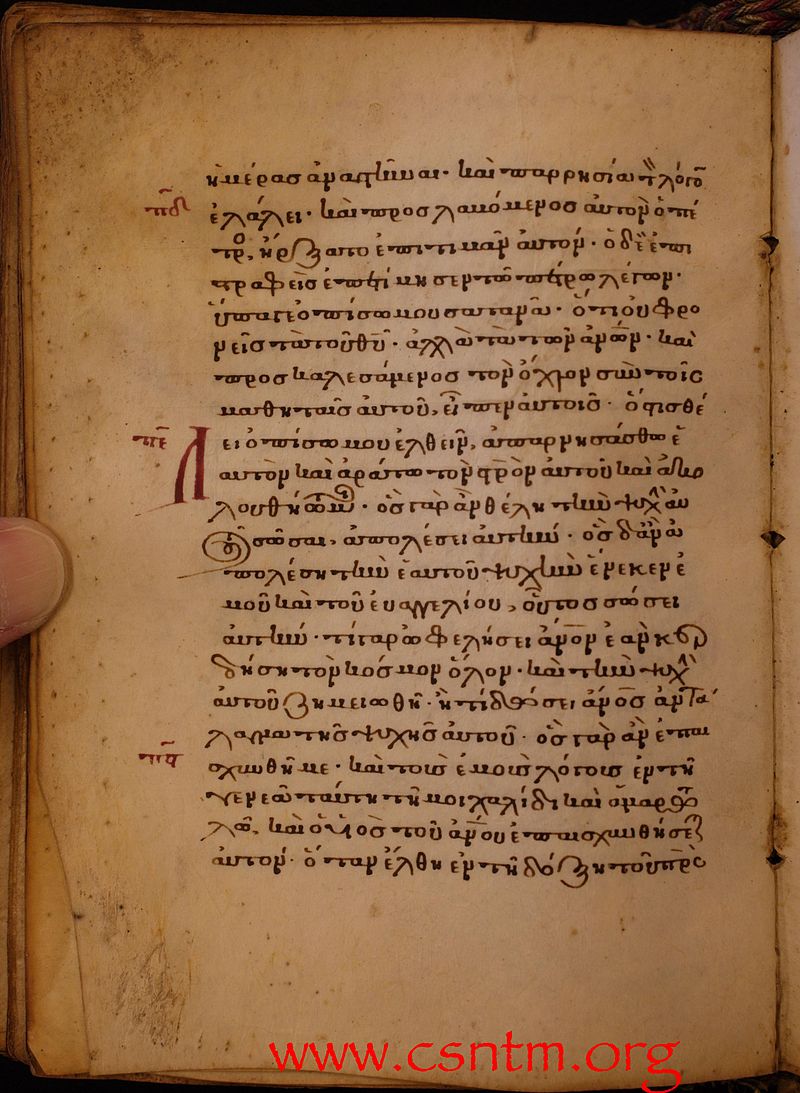 ἡμέρασ ἀναστῆναι· καὶ παρρησία τὸν λόγον
πδ ἐλάλει· καὶ προσλαβόμενοσ αὐτὸν ὁ πέ
τρος, ἤρξατο ἐπιτιμᾶν αὐτόν· ὁ δὲ ἐπι
στραφεὶσ ἐπετίμησεν τῶ πέτρω λέγων·
ὕπαγε ὀπίσω μου σατανᾶ· ὅτι οὐ φρο
νεῖσ τὰ τοῦ θῡ· ἀλλὰ τὰ τῶν ἀνω̅ν· καὶ
προσκαλεσάμενοσ τὸν ὄχλον σὺν τοῖς
μαθηταῖσ αὐτοῦ, εἶπεν αὐτοῖσ· ὅστισ θέ
πε λει ὀπίσω μου ἐλθεῖν, ἀπαρνησάσθω ἑ
αυτὸν καὶ ἀράτω τὸν στ̅ρὸν αὐτοῦ καὶ ἀκο
λουθήτω μοι· ὃσ γὰρ ἂν θέλη τὴν ψυχὴν αὐ
τοῦ σῶσαι, ἀπολέσει αὐτήν· ὃσ δ' ἂν ἀ
πολέση τὴν ἑαυτοῦ ψυχὴν ἕνεκεν ἐ
μοῦ καὶ τοῦ εὐαγγελίου, οὗτοσ σώσει
αὐτήν· τί γὰρ ὠφελήσει ἄνο̅ν ἐὰν κερ
δήση τὸν κόσμον ὅλον· καὶ τὴν ψυχὴν
αὐτοῦ ζημειωθῆ· ἢ τί δώσει ἄνο̅σ ἀντάλ
λαγμα τῆσ ψυχῆσ αὐτοῦ· ὃσ γὰρ ἂν ἐπαι
πϛ σχυνθῆ με· καὶ τοὺσ ἐμοὺσ λόγουσ ἐν τῆ
γενεᾶ ταύτη τῆ μοιχαλίδι καὶ ἁμαρτω
λῶ, καὶ ὁ υἱὸσ τοῦ ἀνο̅υ ἐπαισχυνθήσεται
αὐτόν· ὅταν ἔλθη ἐν τῆ δόξη τοῦ πρ̅ς
www.csntm.org